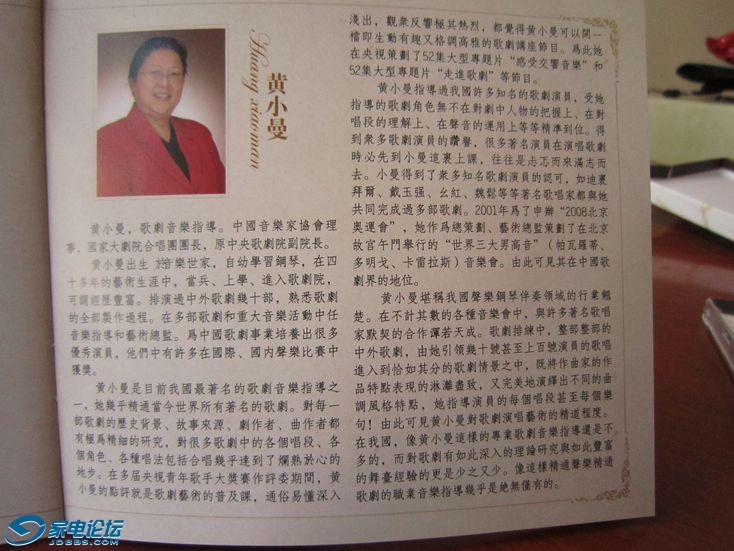 黄小曼
Huang xiaoman
黄小曼，歌劇音樂指導。中國音樂家協會理
事、國家大劇院合唱團團長，原中央歌劇院副院長。
黄小曼出生於音樂世家，自幼學習鋼琴，在四
十多年的藝術生涯中，當兵、上學、進入歌劇院，
可謂經歷豐富。排演過中外歌劇幾十部，熟悉歌劇
的全部製作過程。在多部歌劇和重大音樂活動中任
音樂指導和藝術總監。爲中國歌劇事業培養出很多
優秀演員，他們中有許多在國際、國内聲樂比賽中
獲獎。
黄小曼是目前我國最著名的歌劇音樂指導之
一，她幾乎精通當今世界所有著名的歌劇。對每一
部歌劇的歷史背景、故事來源、劇作者、曲作者都
有極爲精細的研究，對很多歌劇中的各個唱段、各
個角色、各種唱法包括合唱幾乎達到了爛熟於心的
地步。在多届央視青年歌手大獎賽作評委期間，黄
小曼的點評就是歌劇藝術的普及課，通俗易懂深入
淺出，觀衆反響極其熱烈，都覺得黄小曼可以開一
檔即生動有趣又格調高雅的歌劇講座節目。爲此她
在央視策劃了52集大型專題片“感受交響音樂”和
52集大型專題片“走進歌劇”等節目。
黄小曼指導過我國許多知名的歌劇演員，受她
指導的歌劇角色無不在對劇中人物的把握上、在對
唱段的理解上、在聲音的運用上等等精準到位。得
到衆多歌劇演員的讚譽，很多著名演員在演唱歌劇
時必先到小曼這裏上課，往往是忐忑而來滿志而
去。小曼得到了衆多知名歌劇演員的認可，如迪裏
拜爾、戴玉强、幺紅、魏鬆等等著名歌唱家都與她
共同完成過多部歌劇。2001年爲了申辦“2008北京
奥運會”，她作爲總策劃、藝術總監策劃了在北京
故宫午門舉行的“世界三大男高音”（帕瓦羅蒂、
多明戈、卡雷拉斯）音樂會。由此可見其在中國歌
劇界的地位。
黄小曼堪稱我國聲樂鋼琴伴奏領域的行業翹
楚。在不計其數的各種音樂會中，與許多著名歌唱
家默契的合作渾若天成。歌劇排練中，整部整部的
中外歌劇，由她引領幾十號甚至上百號演員的歌唱
進入到恰如其分的歌劇情景之中，既將作曲家的作
品特點表現的淋灕盡致，又完美地演繹出不同的曲
調風格特點，她指導演員的每個唱段甚至每個樂
句！由此可見黄小曼對歌劇演唱藝術的精道程度。
在我國，像黄小曼這樣的專業歌劇音樂指導還是不
多的，而對歌劇有如此深入的理論研究與如此豐富
的舞臺經驗的更是少之又少。像這樣精通聲樂精通
歌劇的職業音樂指導幾乎是絶無僅有的。
家电论坛
JDBBS.COM